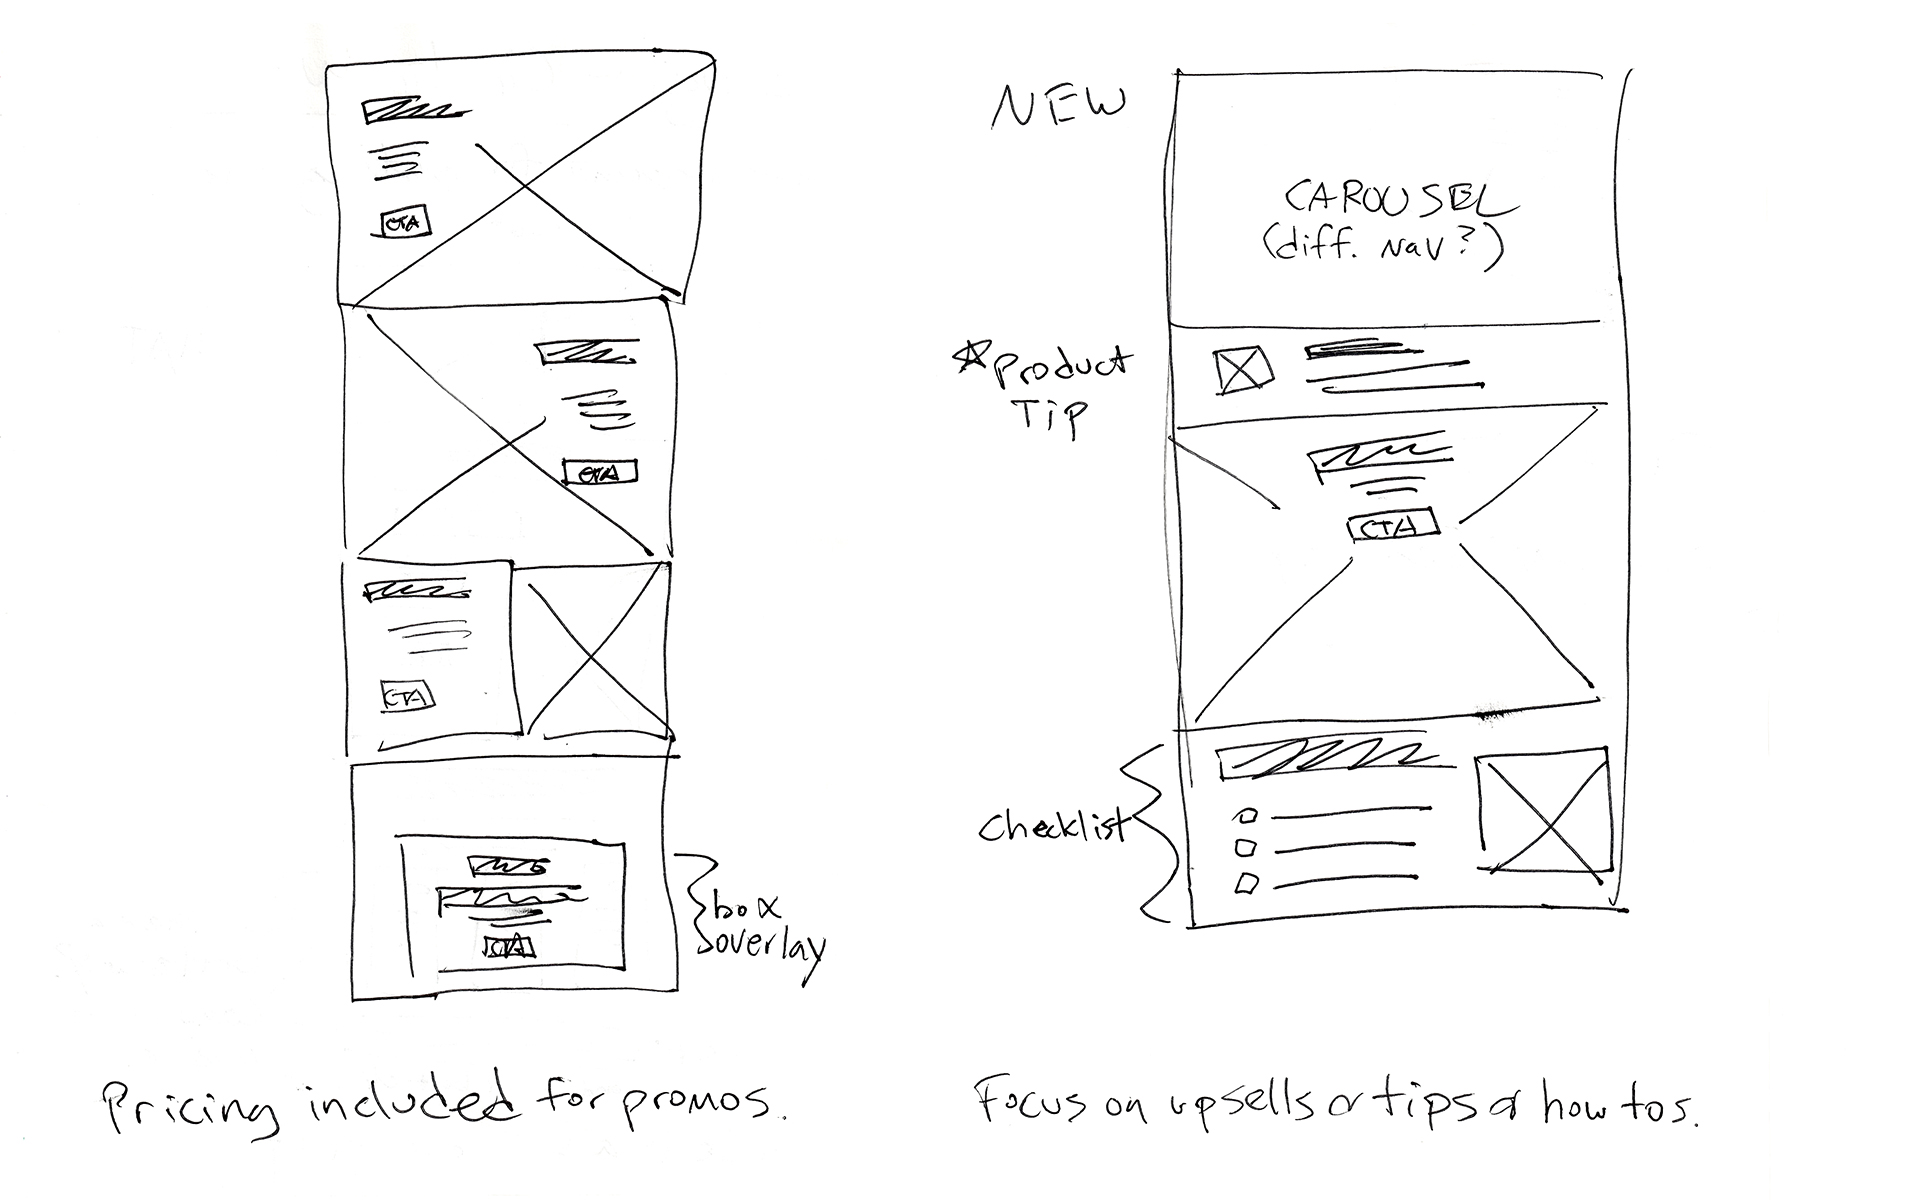 CTA
CTA
CTA
CTA
box
overlay
Pricing included for promos.
NEW
CAROUSEL
(diff. nav?)
Product
Tip
CTA
checklist
Focus on upsells or tips or how tos.